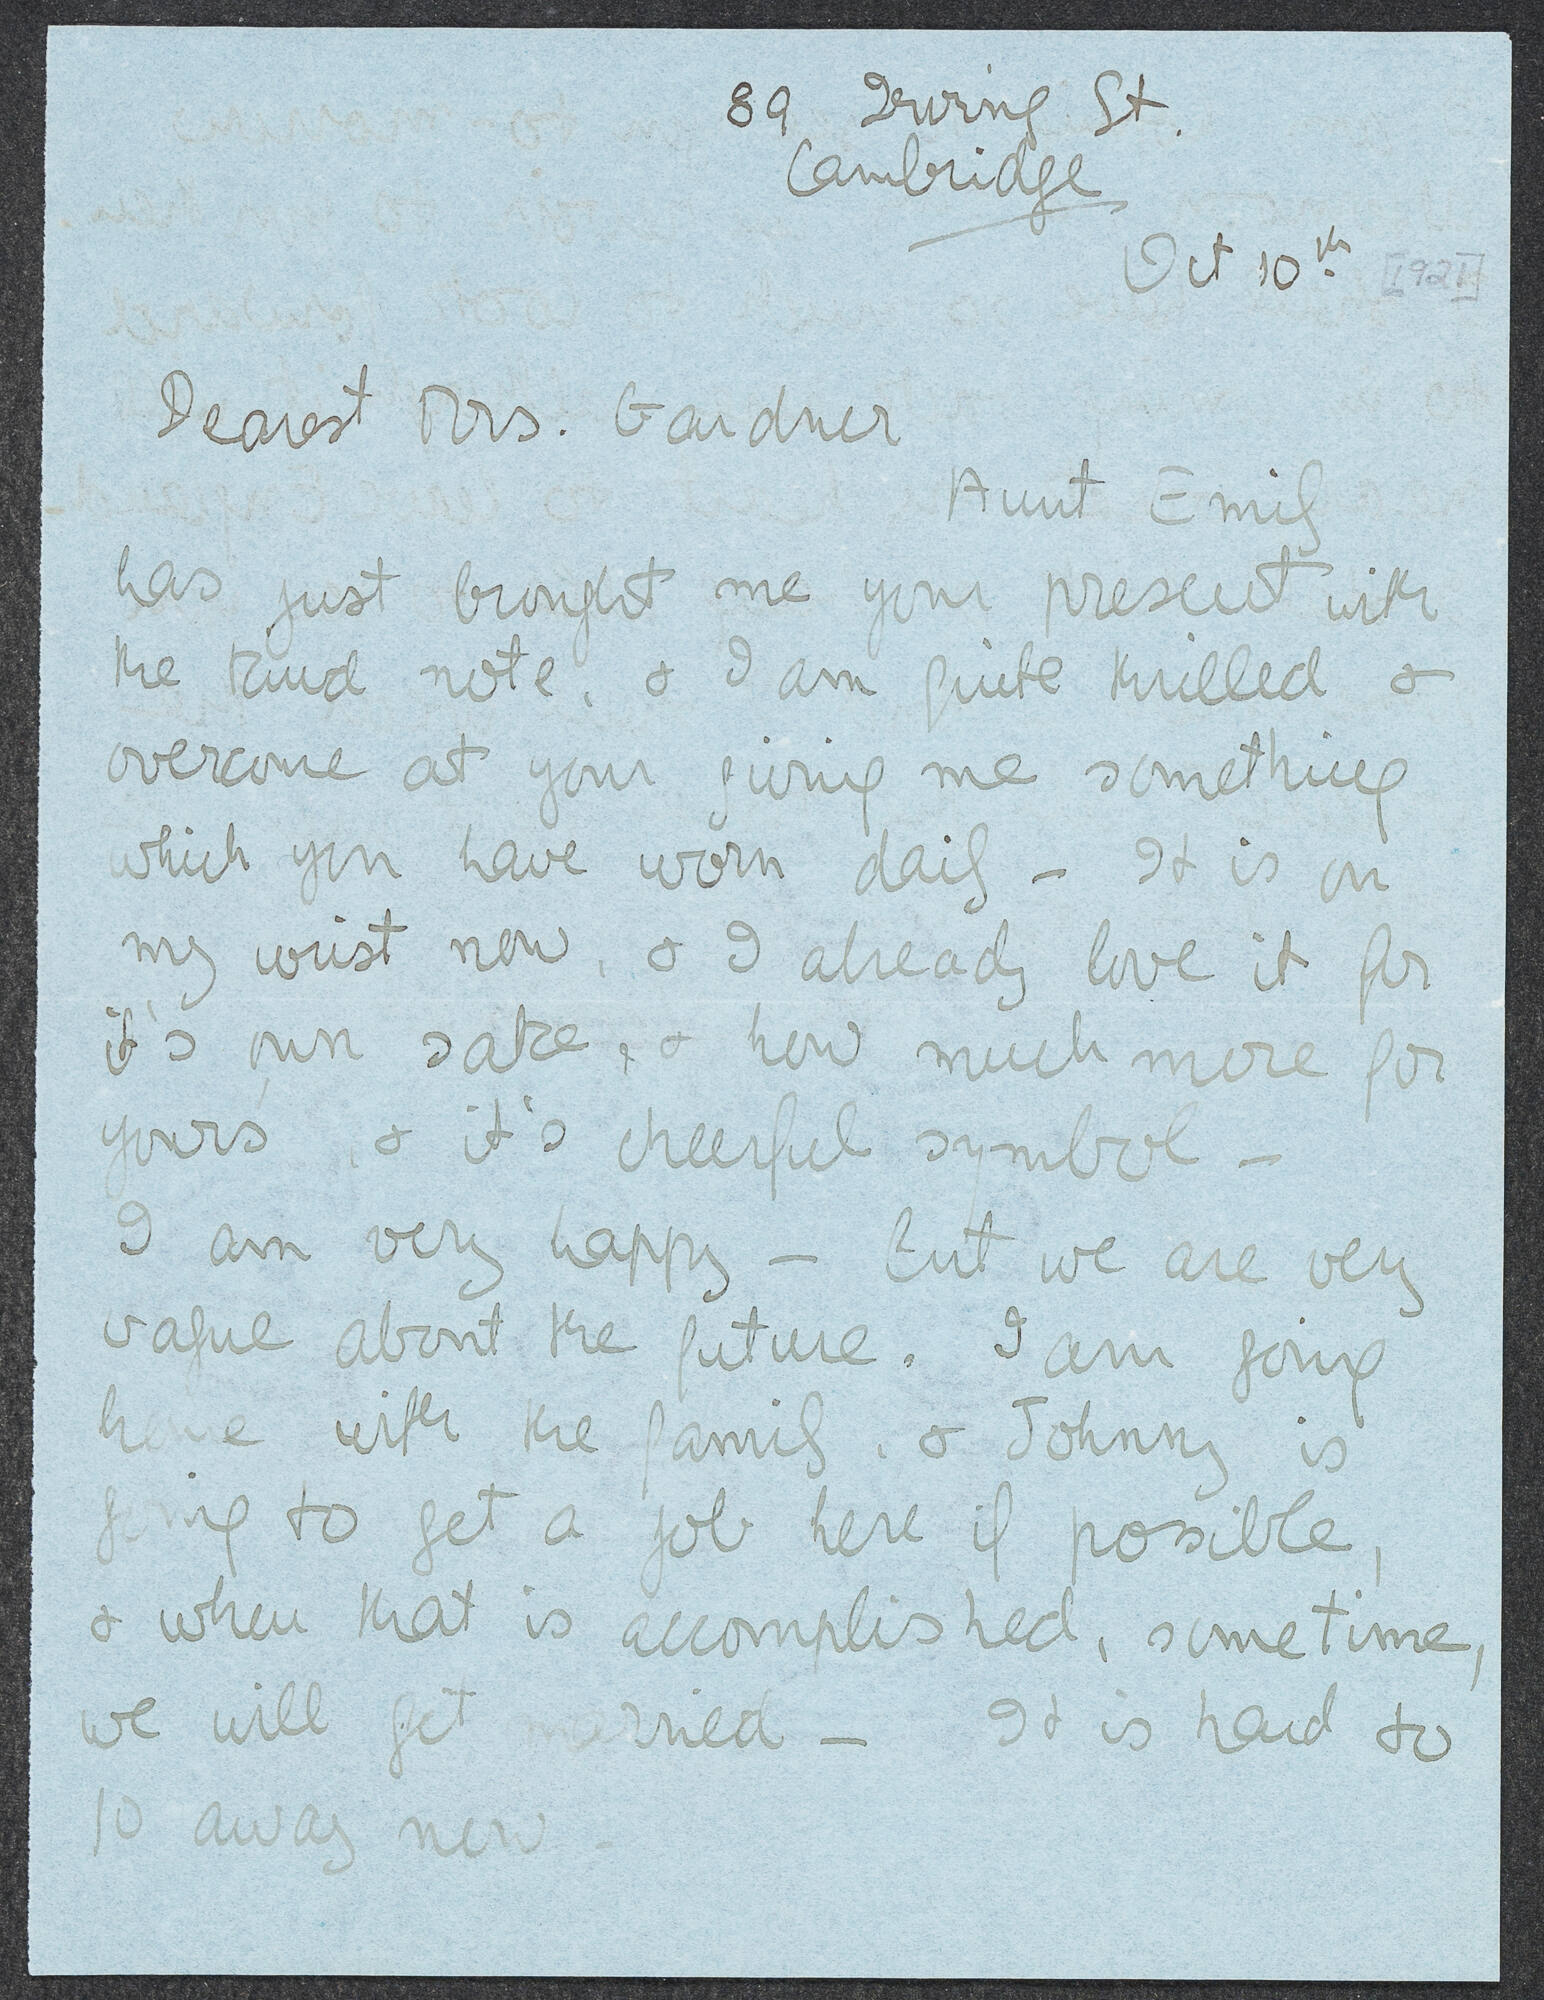 89 Irving St.
Cambridge
Oct 10th [1921]
Dearest Mrs. Gardner
Aunt Emily
has just brought me your present with
the kind note, & I am quite thrilled &
overcome at your giving me something
which you have worn daily – It is on
my wrist now, & I already love it for
it's own sake, & how much more for
yours, & it's cheerful symbol –
I am very happy – But we are very
vague about the future. I am going
home with the family, & Johnny is
going to get a job here if possible,
& when that is accomplished, sometime,
we will get married – It is hard to
go away now –